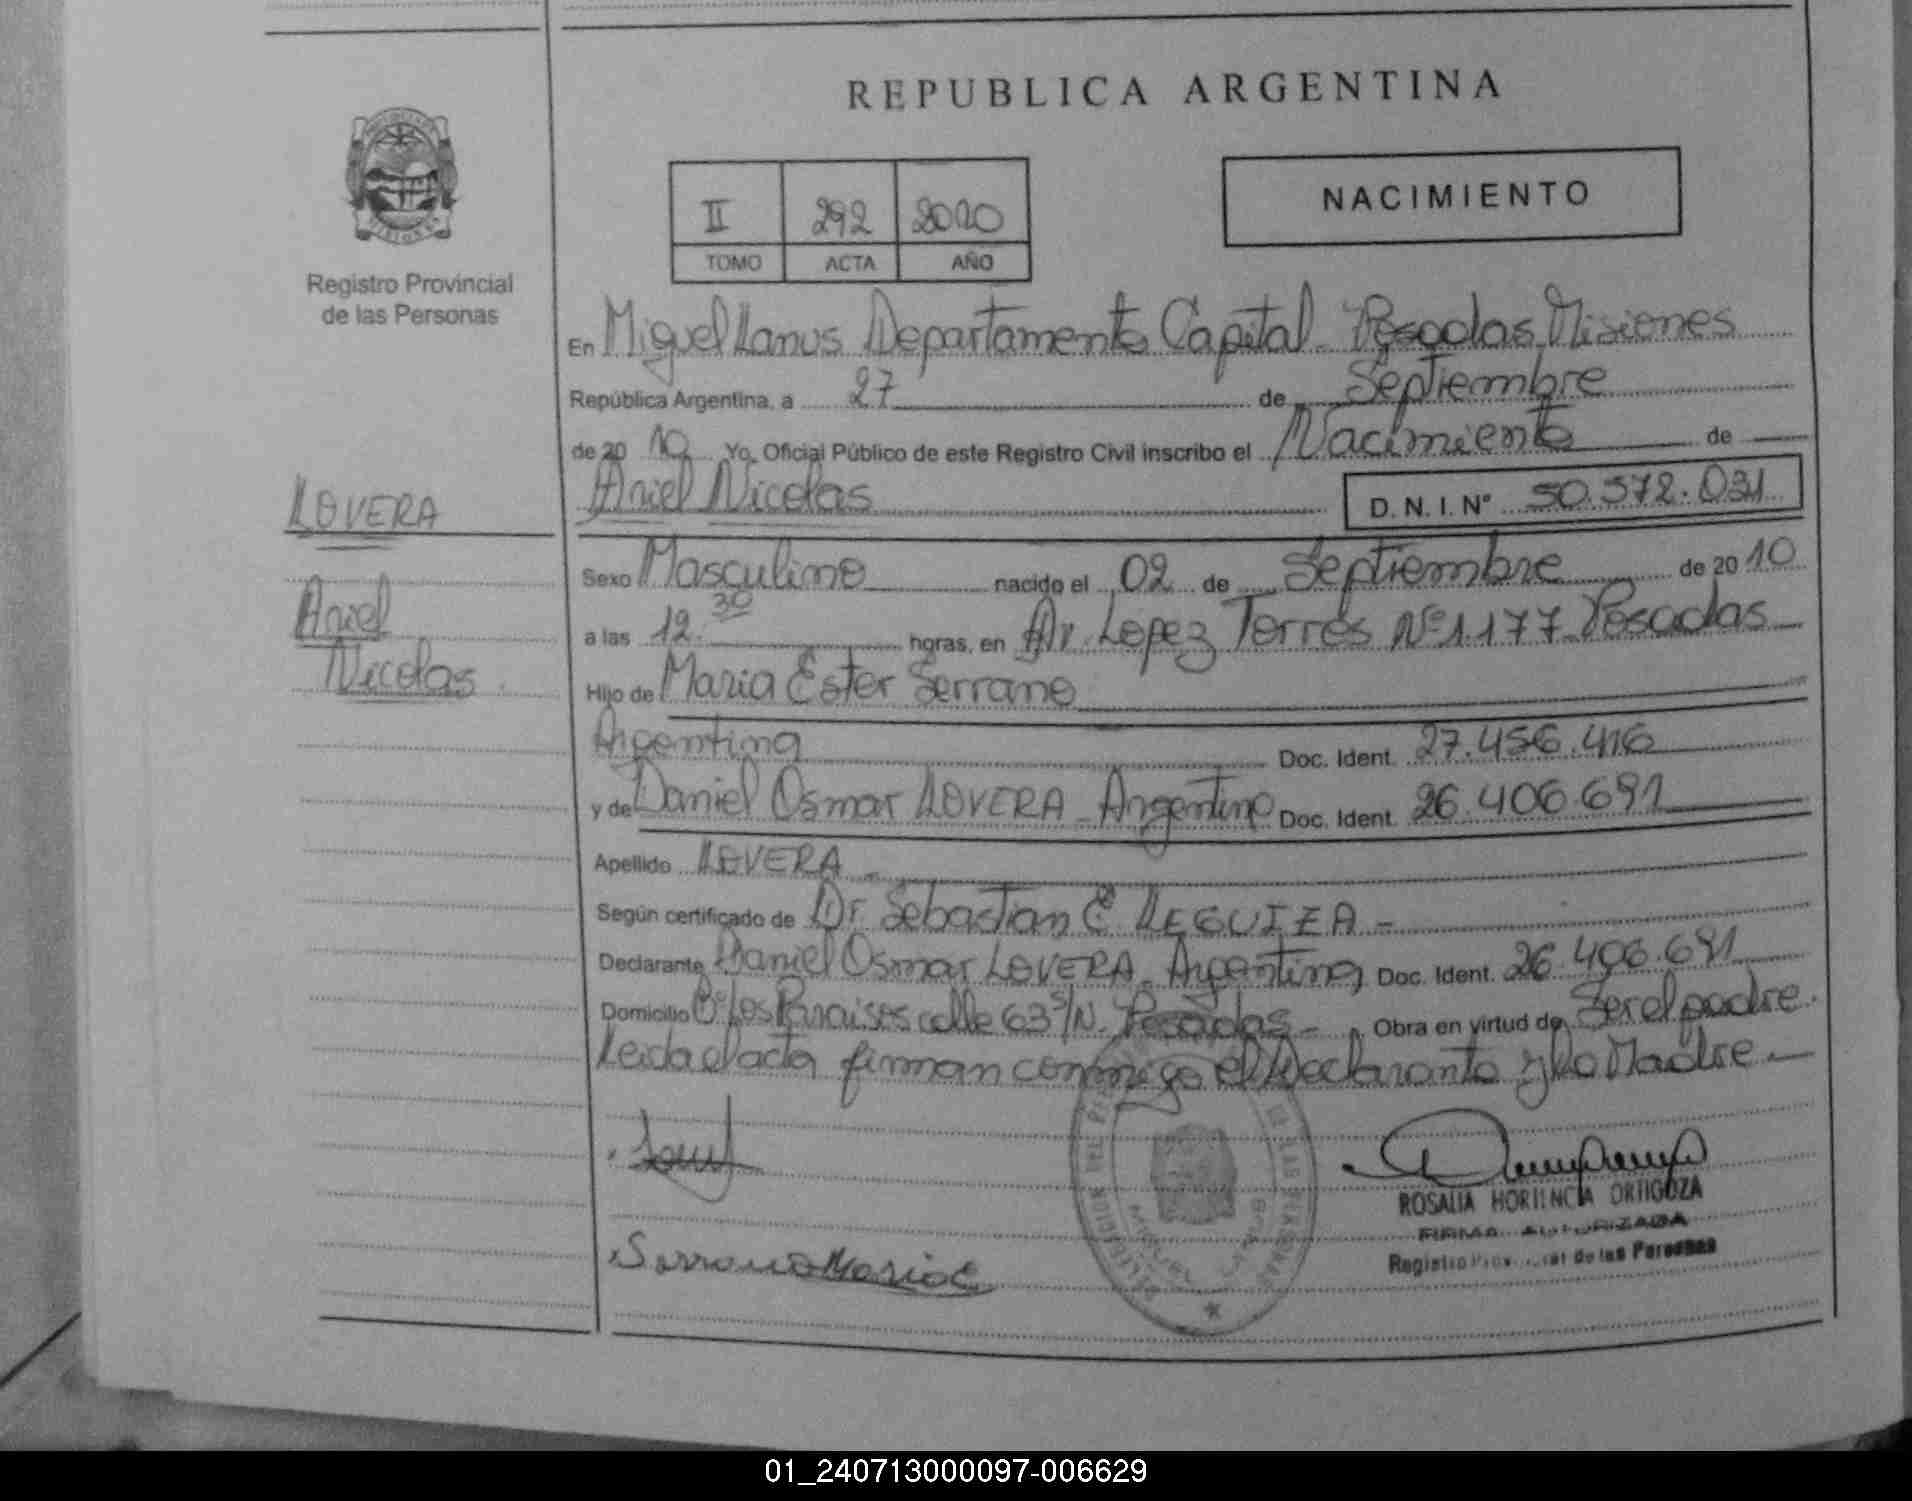 REPUBLICA ARGENTINA
NACIMIENTO
II 292 2010
TOMO ACTA AÑO
Registro Provincial
de las Personas
En Miguel Lanus Departamento Capital - Posadas Misiones
República Argentina, a 27 de Septiembre
de 20 10 Yo, Oficial Público de este Registro Civil inscribo el Nacimiento de
Ariel Nicolas D. N. I. N° 50.572.031
LOVERA
Ariel
Nicolas
Sexo Masculino nacido el 02 de Septiembre de 20 10
a las 12.30 horas, en Av. Lopez Torres Nº 1177 Posadas
Hijo de Maria Ester Serrano
Argentina Doc. Ident. 27.456.416
y de Daniel Osmar LOVERA - Argentino Doc. Ident. 26.406.691
Apellido LOVERA -
Según certificado de Dr. Sebastian E LEGUIZA -
Declarante Daniel Osmar LOVERA - Argentino, Doc. Ident. 26.406.691
Domicilio Bº Los Paraisos calle 63 S/N - Posadas - , Obra en virtud de Ser el padre.
Leida el acta firman conmigo el Declarante y la Madre -
Serrano Maria E
ROSALIA HORTENCIA ORTIGOZA
FIRMA AUTORIZADA
Registro Provincial de las Personas
01_240713000097-006629